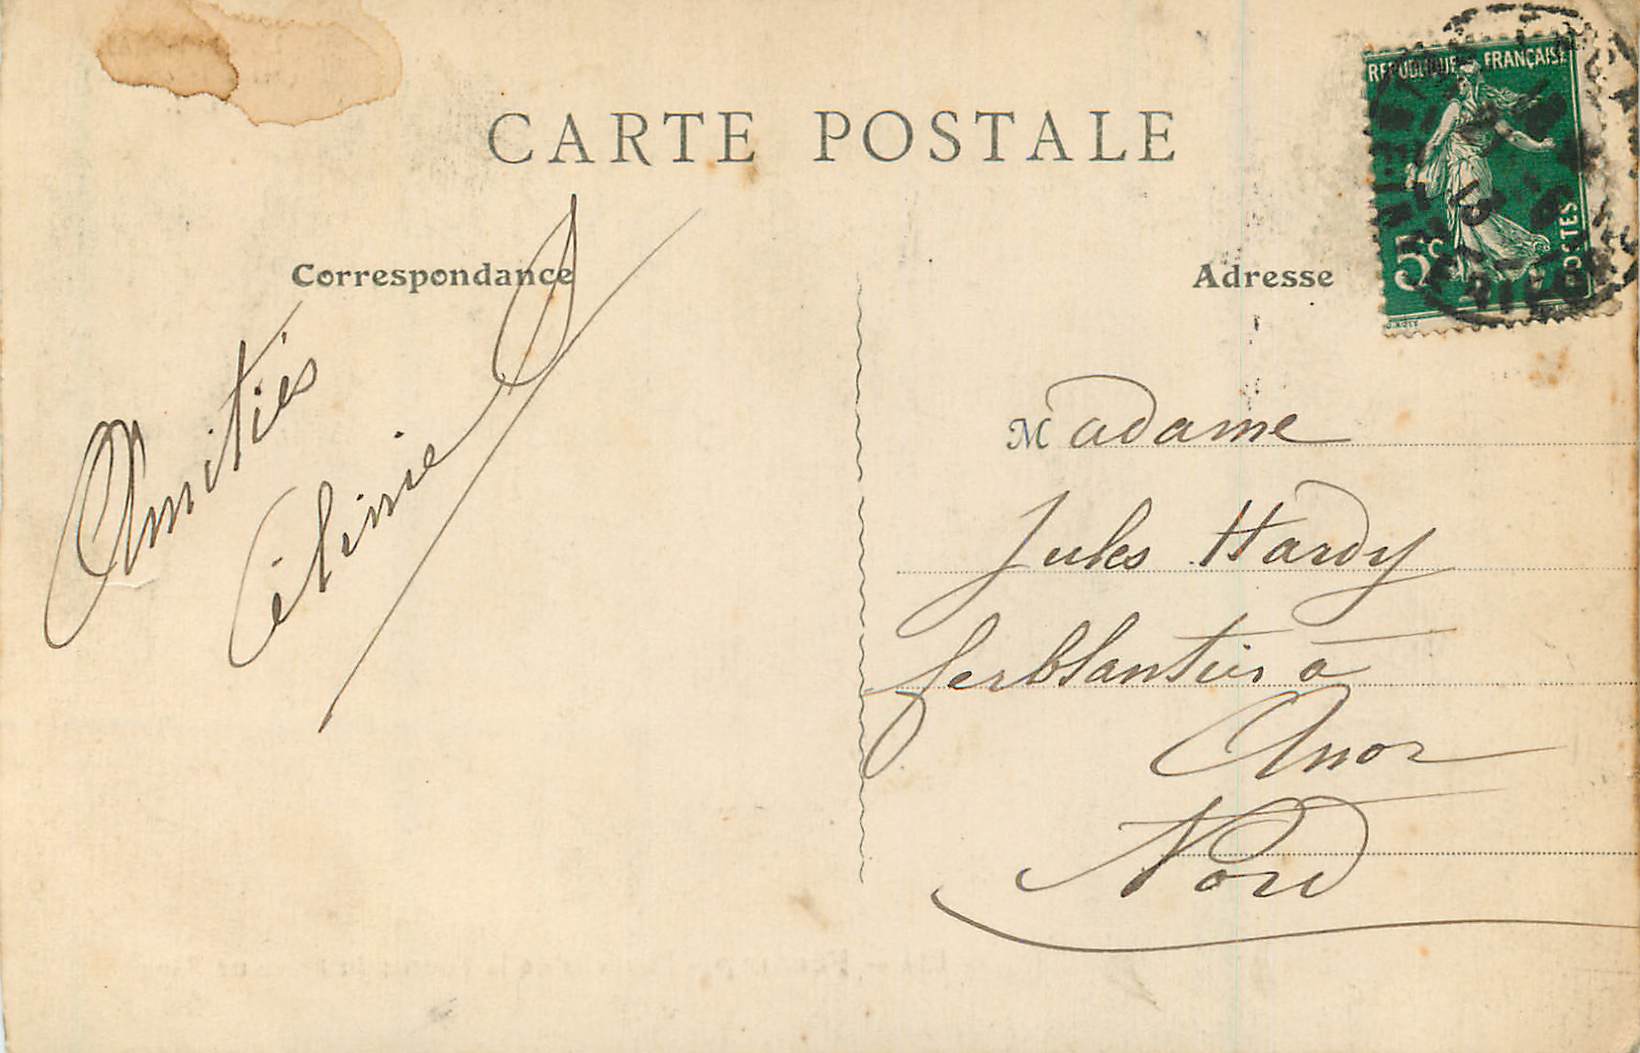 CARTE POSTALE
Correspondance
Amitiés
Célinie
Adresse
REPUBLIQUE FRANÇAISE
POSTES
5c
Madame
Jules Hardy
ferblantier à
Anor
Nord